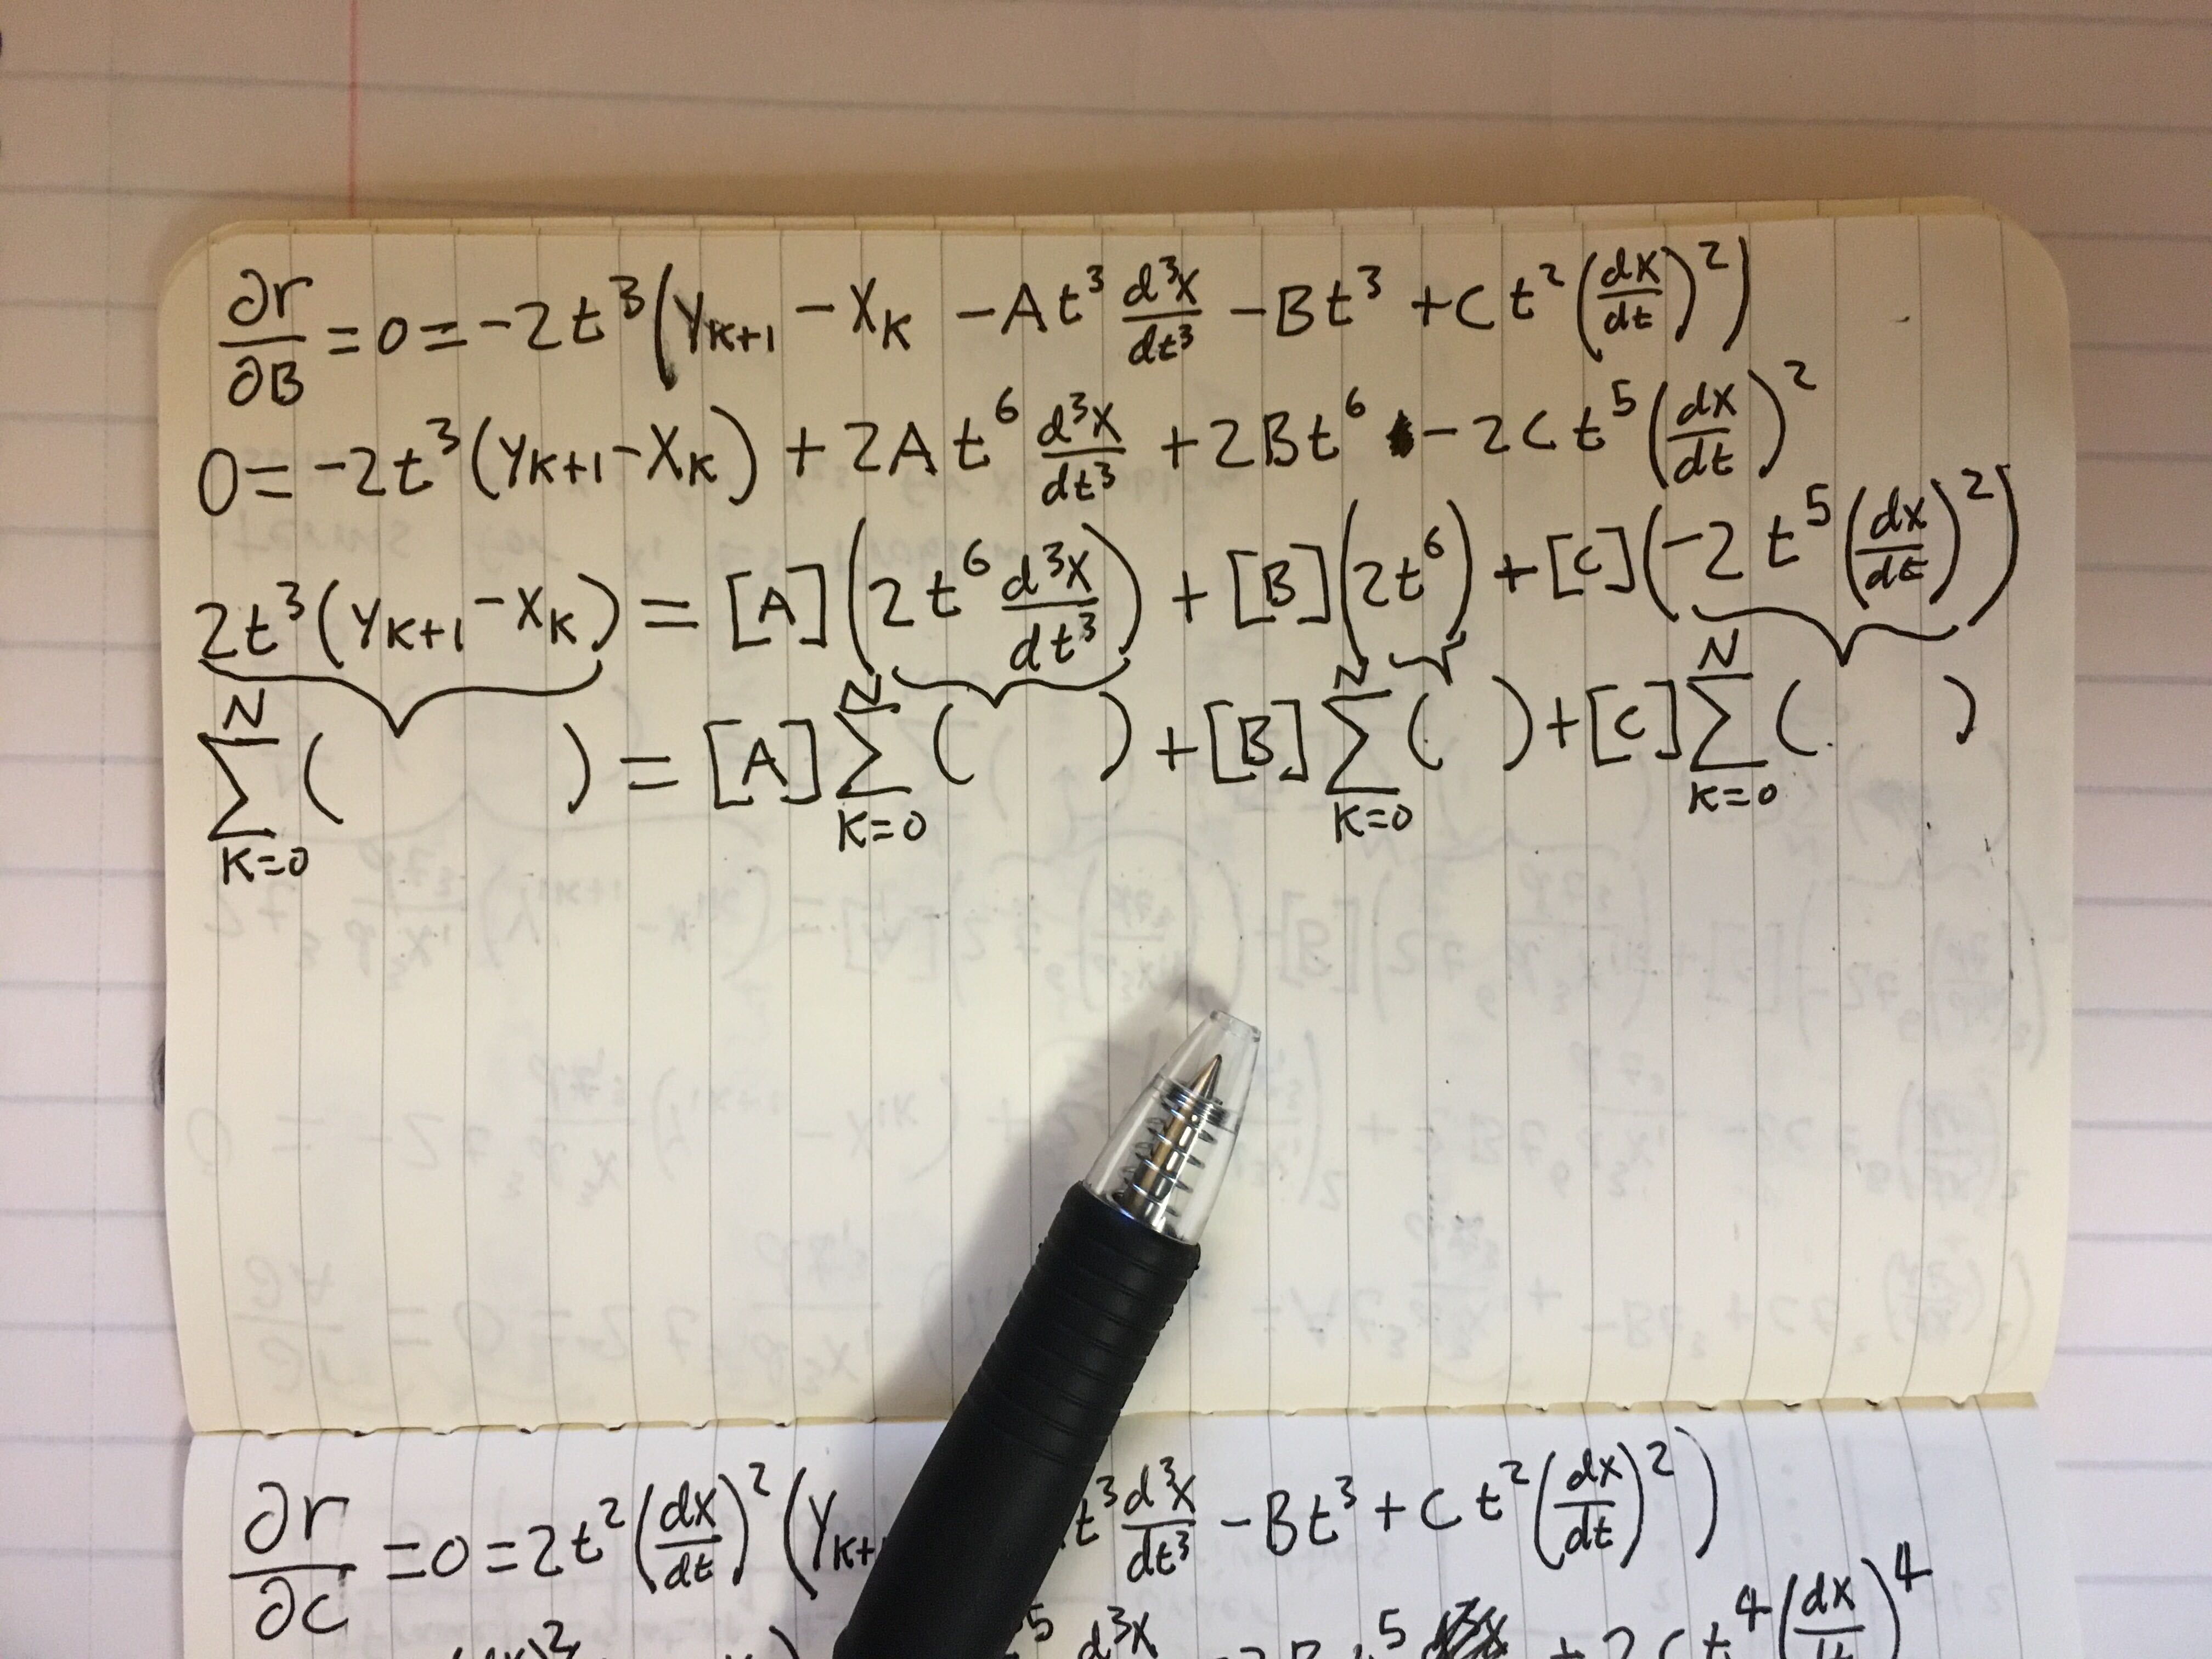 ∂r/∂B = 0 = -2t³(Y_{K+1} - X_K - At³ d³x/dt³ - Bt³ + Ct²(dx/dt)²)
0 = -2t³(Y_{K+1} - X_K) + 2At⁶ d³x/dt³ + 2Bt⁶ - 2Ct⁵(dx/dt)²
2t³(Y_{K+1} - X_K) = [A](2t⁶ d³x/dt³) + [B](2t⁶) + [C](-2t⁵(dx/dt)²)
∑_{K=0}^{N} ( ) = [A] ∑_{K=0}^{N} ( ) + [B] ∑_{K=0}^{N} ( ) + [C] ∑_{K=0}^{N} ( )
∂r/∂C = 0 = 2t²(dx/dt)²(Y_{K+ t³ d³x/dt³ - Bt³ + Ct²(dx/dt)²)
⁵ d³x ⁵ + 2Ct⁴(dx/dt)⁴